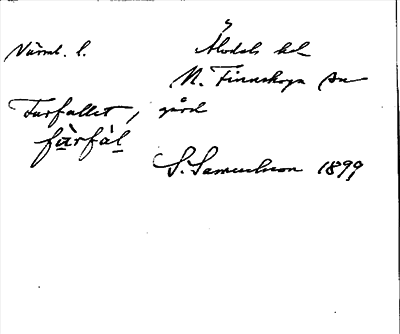 Värml. l. Älvdals hd
N. Finnskoga sn
Furfallet, gård
fùrfàl
S. Samuelsson 1899